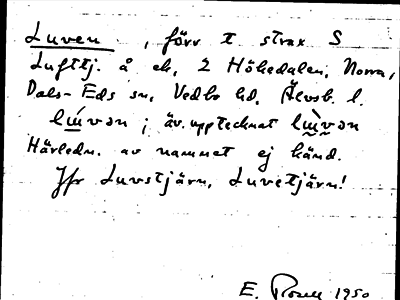 Luven, förr t strax S
Lufttj. å ek, i Hökedalen, Norra,
Dals-Eds sn, Vedbo hd, Älvsb. l.
luvən ; äv. upptecknat luvən
Härledn. av namnet ej känd.
Jfr Luvstjärn, Luvetjärn!
E. 1950